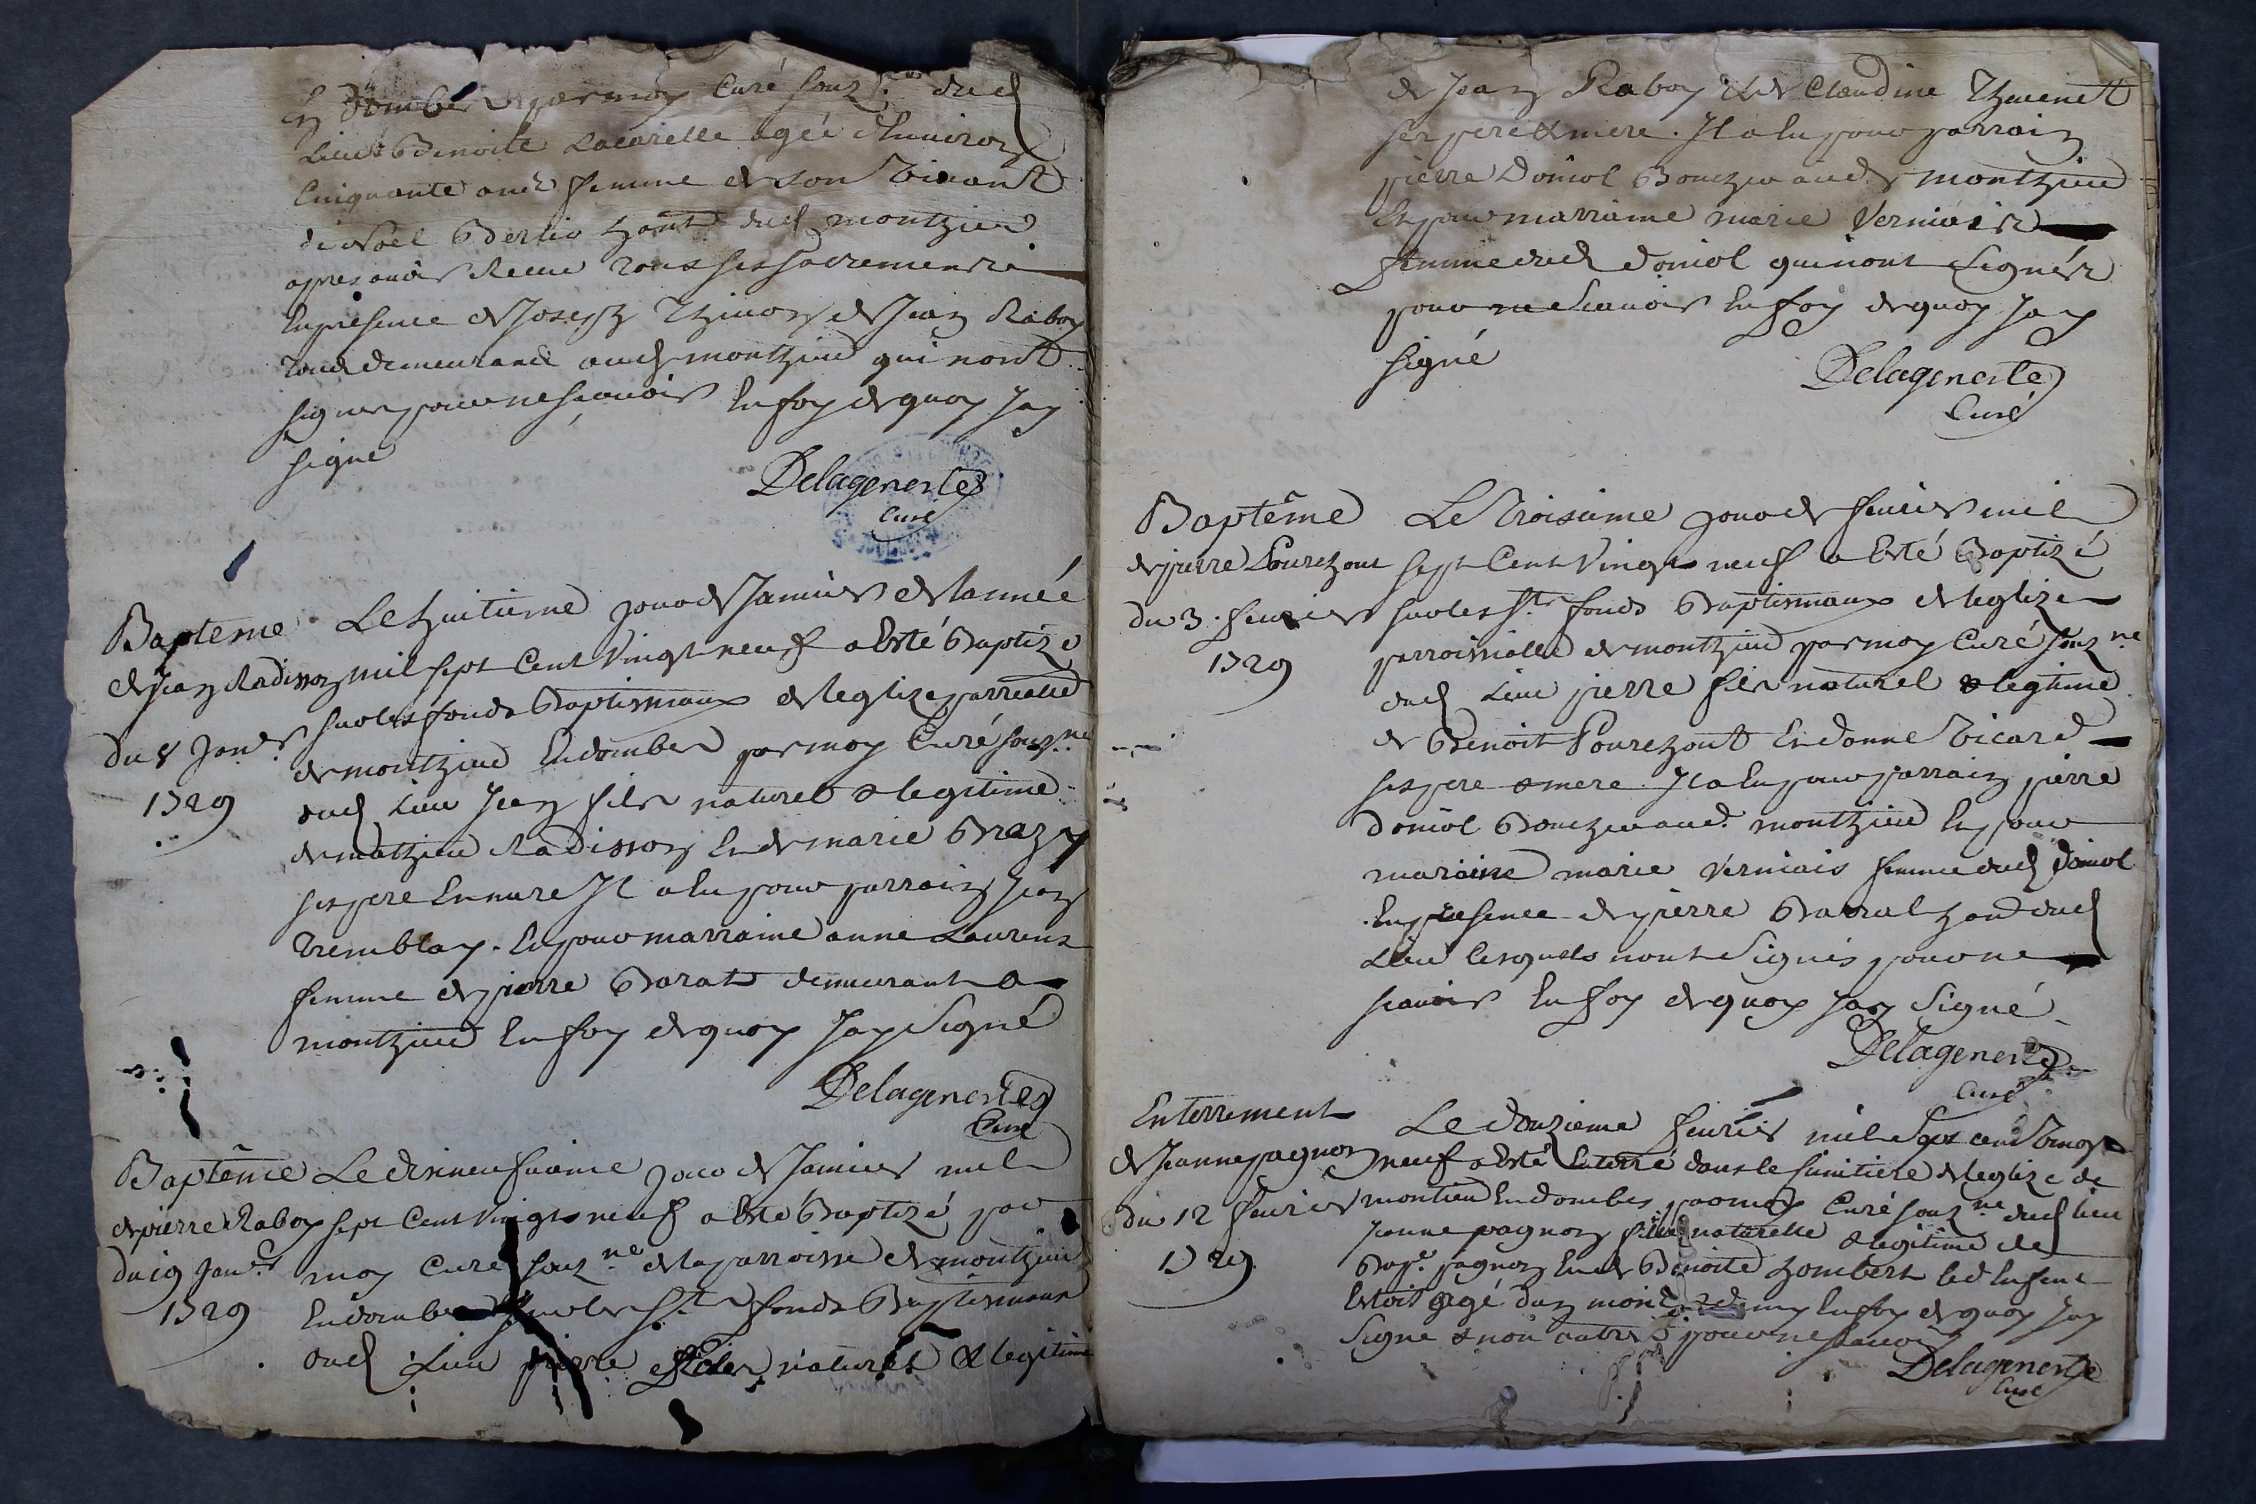 En Dombes par moy Curé souz.né dud
Lieu Benoite Lacarelle agée d'Environ
Cinquante ans femme de son vivant
de Noel Berlio hant dud montzieu
apres avoir Receu tous ses sacrements
En presence de Joseph Thivon de Jean Raboy
tous demeurants aud montzieu qui n'ont
signer pour ne scavoir En foy de quoy Jay
signé
Delagenerte
Curé
Bapteme
de Jean Radisson
du 8 Janer
1729
Le huitieme jour de Janvier de lannée
mil sept Cent Vingt neuf a Esté Baptizé
sur les fonds Baptismaux de leglize parrealle
de montzieu En dombes par moy Curé souz.ne
dud Lieu Jean fils naturel & legitime
de mathieu Radisson En de marie Brazy
ses pere En mere Il a Eu pour parrain Jean
tremblay. En pour marraine anne Laurent
femme de pierre Barat demeurant a
montzieu En foy de quoy Jay Signé
Delagenerte
Curé
Baptême
de pierre Raboy
du 19 Janer
1729
Le dixneufvieme jour de Janvier mil
sept Cent Vingt neuf a Esté Baptizé par
moy Curé souz.ne de la parroisse de montzieu
En dombes sur les St fonds Baptismaux
dud Lieu pierre fils naturel & legitime
de Jean Raboy & de Claudine Thevenet
ses pere & mere. Il a Eu pour parrain
pierre Doniol Boucher aud montzieu
En pour marraine marie Verniais
femme dud Doniol qui nont Signés
pour ne Scavoir En foy de quoy Jay
signé
Delagenerte
Curé
Baptême
de pierre Pourchout
du 3. fevrier
1729
Le Troisieme jour de fevrier mil
sept Cent Vingt neuf a Esté Baptizé
sur les Sts fonds Baptismaux de leglize
parroissialle de montzieu par moy Curé souz.ne
dud Lieu pierre fils naturel & legtime
de Benoit Pourchout En danne Vicard
ses pere & mere. Il a Eu pour parrain pierre
doniol Boucher aud. montzieu En pour
maraine marie Verniais femme dud doniol
En presence de pierre Barral hant dud
Lieu lesquels nont Signés pour ne
scavoir En foy de quoy Jay Signé
Delagenerte
Curé
Enterrement
de Jeanne pagnon
du 12 fevrier
1729
Le douzieme fevrier mil Sept cent vingt
neuf a Esté Enterré dans le simitiere de leglize de
montieu En dombes par moy Curé souz.ne dud lieu
Jeanne pagnon fille naturelle & legitime de
Bap.te pagnon En de Benoite hombert led Enfent
Estoit agé dun mois & demy En foy de quoy Jay
Signé & non autres pour ne scavoir
Delagenerte
Curé